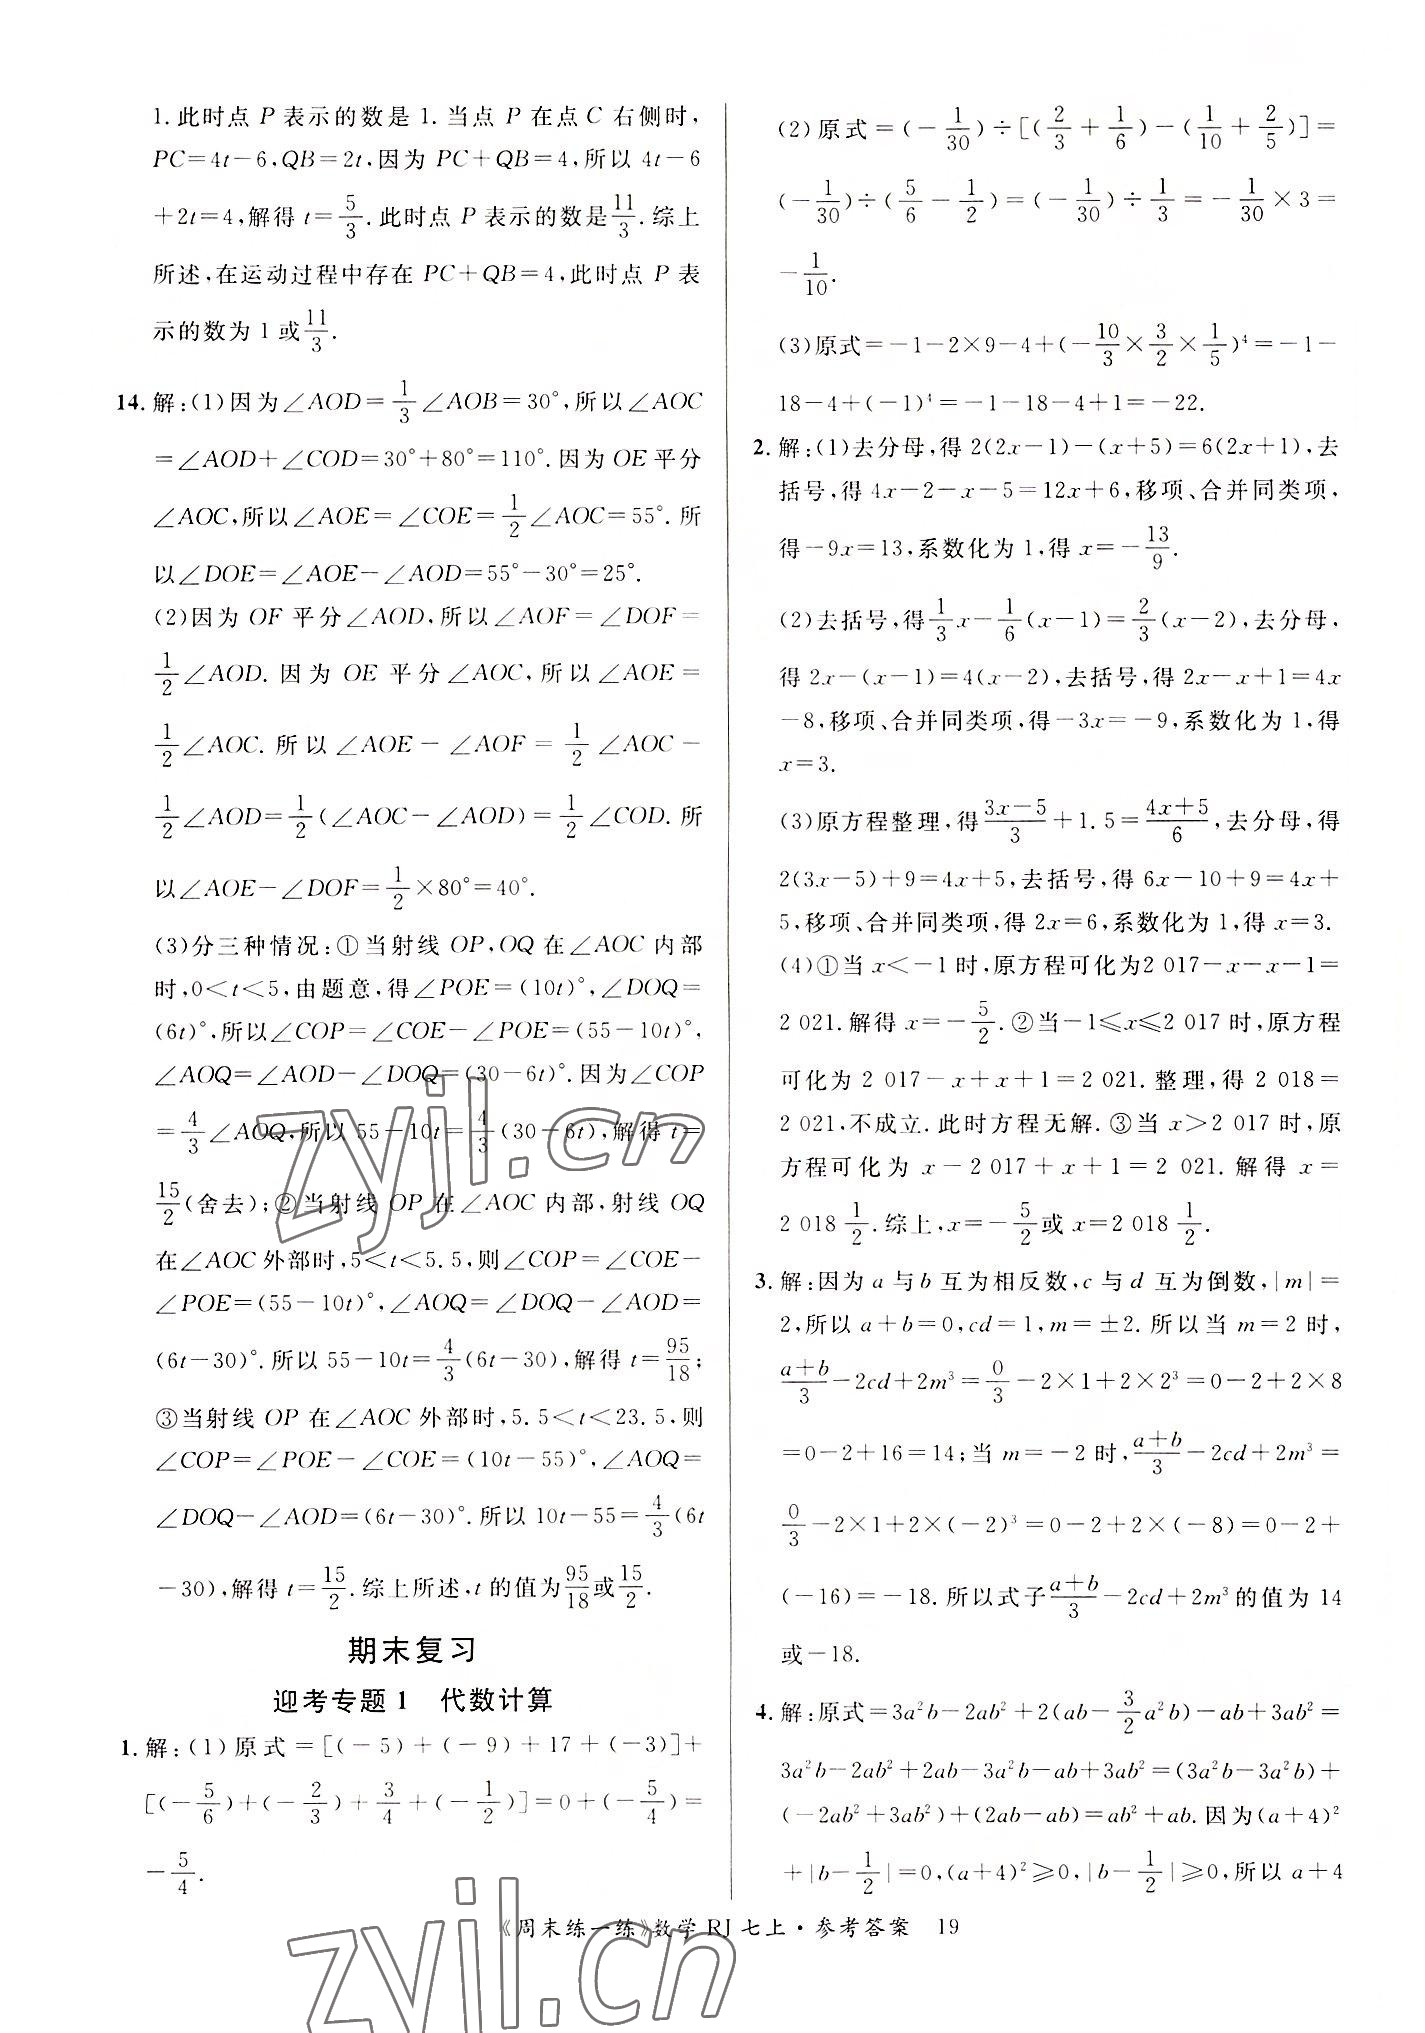 1.此时点 P 表示的数是 1.当点 P 在点 C 右侧时,
PC=4t-6,QB=2t,因为 PC+QB=4,所以 4t-6
+2t=4,解得 t=5/3.此时点 P 表示的数是11/3.综上
所述,在运动过程中存在 PC+QB=4,此时点 P 表
示的数为 1 或11/3.
14.解:(1)因为∠AOD=1/3∠AOB=30°,所以∠AOC
=∠AOD+∠COD=30°+80°=110°.因为 OE 平分
∠AOC,所以∠AOE=∠COE=1/2∠AOC=55°.所
以∠DOE=∠AOE-∠AOD=55°-30°=25°.
(2)因为 OF 平分∠AOD,所以∠AOF=∠DOF=
1/2∠AOD.因为 OE 平分∠AOC,所以∠AOE=
1/2∠AOC.所以∠AOE-∠AOF=1/2∠AOC-
1/2∠AOD=1/2(∠AOC-∠AOD)=1/2∠COD.所
以∠AOE-∠DOF=1/2×80°=40°.
(3)分三种情况:①当射线 OP,OQ 在∠AOC 内部
时,0<t<5,由题意,得∠POE=(10t)°,∠DOQ=
(6t)°,所以∠COP=∠COE-∠POE=(55-10t)°,
∠AOQ=∠AOD-∠DOQ=(30-6t)°.因为∠COP
=4/3∠AOQ,所以 55-10t=4/3(30-6t),解得 t=
15/2(舍去);②当射线 OP 在∠AOC 内部,射线 OQ
在∠AOC 外部时,5<t<5.5,则∠COP=∠COE-
∠POE=(55-10t)°,∠AOQ=∠DOQ-∠AOD=
(6t-30)°.所以 55-10t=4/3(6t-30),解得 t=95/18;
③当射线 OP 在∠AOC 外部时,5.5<t<23.5,则
∠COP=∠POE-∠COE=(10t-55)°,∠AOQ=
∠DOQ-∠AOD=(6t-30)°.所以 10t-55=4/3(6t
-30),解得 t=15/2.综上所述,t 的值为95/18或15/2.
期末复习
迎考专题 1 代数计算
1.解:(1)原式=[(-5)+(-9)+17+(-3)]+
[(-5/6)+(-2/3)+3/4+(-1/2)]=0+(-5/4)=
-5/4.
(2)原式=(-1/30)÷[(2/3+1/6)-(1/10+2/5)]=
(-1/30)÷(5/6-1/2)=(-1/30)÷1/3=-1/30×3=
-1/10.
(3)原式=-1-2×9-4+(-10/3×3/2×1/5)⁴=-1-
18-4+(-1)⁴=-1-18-4+1=-22.
2.解:(1)去分母,得 2(2x-1)-(x+5)=6(2x+1),去
括号,得 4x-2-x-5=12x+6,移项、合并同类项,
得-9x=13,系数化为 1,得 x=-13/9.
(2)去括号,得1/3x-1/6(x-1)=2/3(x-2),去分母,
得 2x-(x-1)=4(x-2),去括号,得 2x-x+1=4x
-8,移项、合并同类项,得-3x=-9,系数化为 1,得
x=3.
(3)原方程整理,得(3x-5)/3+1.5=(4x+5)/6,去分母,得
2(3x-5)+9=4x+5,去括号,得 6x-10+9=4x+
5,移项、合并同类项,得 2x=6,系数化为 1,得 x=3.
(4)①当 x<-1 时,原方程可化为2 017-x-x-1=
2 021.解得 x=-5/2.②当-1≤x≤2 017 时,原方程
可化为 2 017-x+x+1=2 021.整理,得 2 018=
2 021,不成立.此时方程无解.③当 x>2 017 时,原
方程可化为 x-2 017+x+1=2 021.解得 x=
2 018 1/2.综上,x=-5/2或 x=2 018 1/2.
3.解:因为 a 与 b 互为相反数,c 与 d 互为倒数,|m|=
2,所以 a+b=0,cd=1,m=±2.所以当 m=2 时,
(a+b)/3-2cd+2m³=0/3-2×1+2×2³=0-2+2×8
=0-2+16=14;当 m=-2 时,(a+b)/3-2cd+2m³=
0/3-2×1+2×(-2)³=0-2+2×(-8)=0-2+
(-16)=-18.所以式子(a+b)/3-2cd+2m³的值为 14
或-18.
4.解:原式=3a²b-2ab²+2(ab-3/2a²b)-ab+3ab²=
3a²b-2ab²+2ab-3a²b-ab+3ab²=(3a²b-3a²b)+
(-2ab²+3ab²)+(2ab-ab)=ab²+ab.因为(a+4)²
+|b-1/2|=0,(a+4)²≥0,|b-1/2|≥0,所以 a+4
《周末练一练》数学 RJ 七上·参考答案 19
zyjl.cn
zyjl.cn